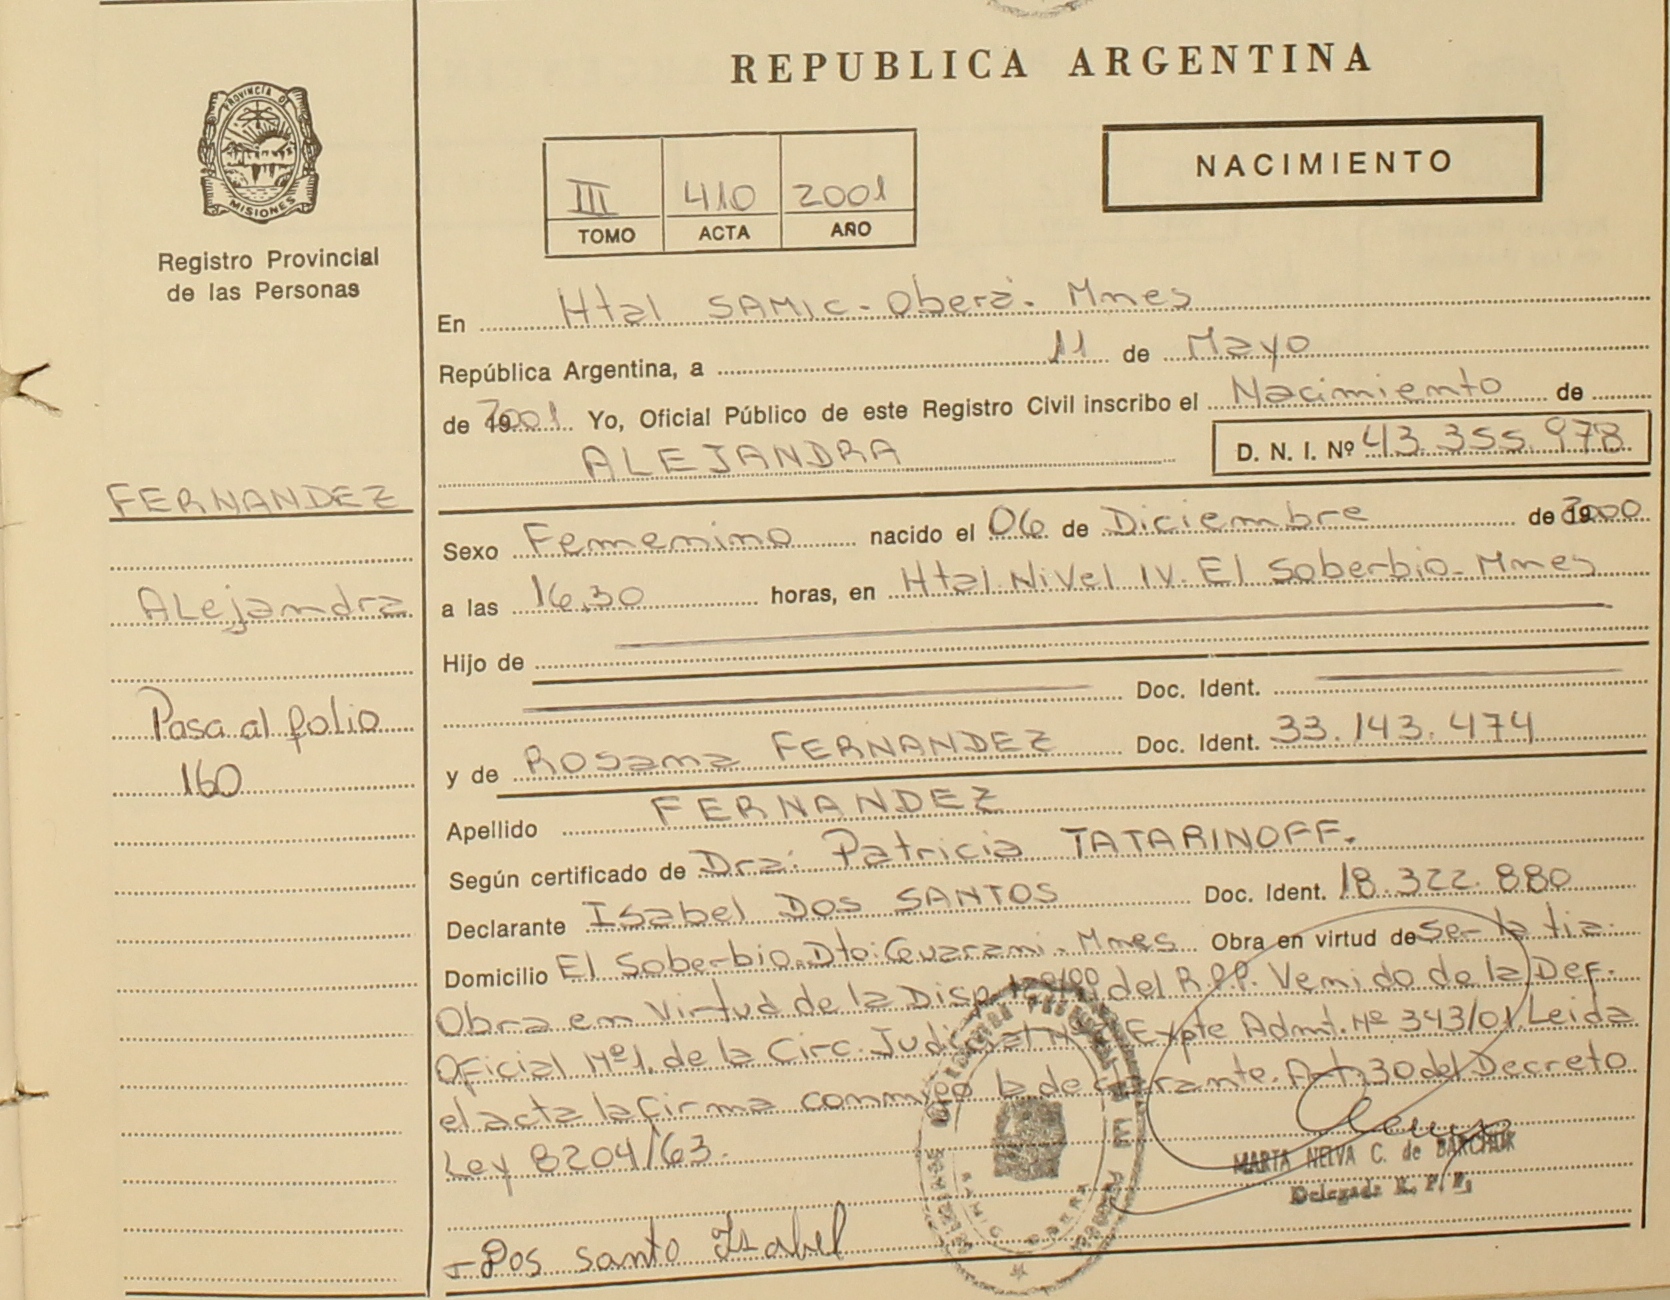 REPUBLICA ARGENTINA
PROVINCIA DE
MISIONES
Registro Provincial
de las Personas
III 410 2001
TOMO ACTA AÑO
NACIMIENTO
En Htal SAMIC - Oberá. Mnes
República Argentina, a 11 de Mayo
de 2001 Yo, Oficial Público de este Registro Civil inscribo el Nacimiento de
ALEJANDRA D. N. I. Nº 43.355.978
FERNANDEZ
Alejandra
Pasa al folio
160
Sexo Femenino nacido el 06 de Diciembre de 2000
a las 16,30 horas, en Htal Nivel IV. El Soberbio - Mnes
Hijo de
Doc. Ident.
y de Rosana FERNANDEZ Doc. Ident. 33.143.474
Apellido FERNANDEZ
Según certificado de Dra: Patricia TATARINOFF.
Declarante Isabel DOS SANTOS Doc. Ident. 18.322.880
Domicilio El Soberbio. Dto: Guarani - Mnes Obra en virtud de Ser la tia.
Obra en Virtud de la Disp. del R.P.P. Venido de la Def.
Oficial Nº1. de la Circ. Judicial Expte Admt. Nº 343/01. Leida
el acta la firma conmigo la declarante. Art. 30 del Decreto
Ley 8204/63.
MARTA NELVA C. de BARCHUK
Delegada R. P. P.
Dos santo Isabel